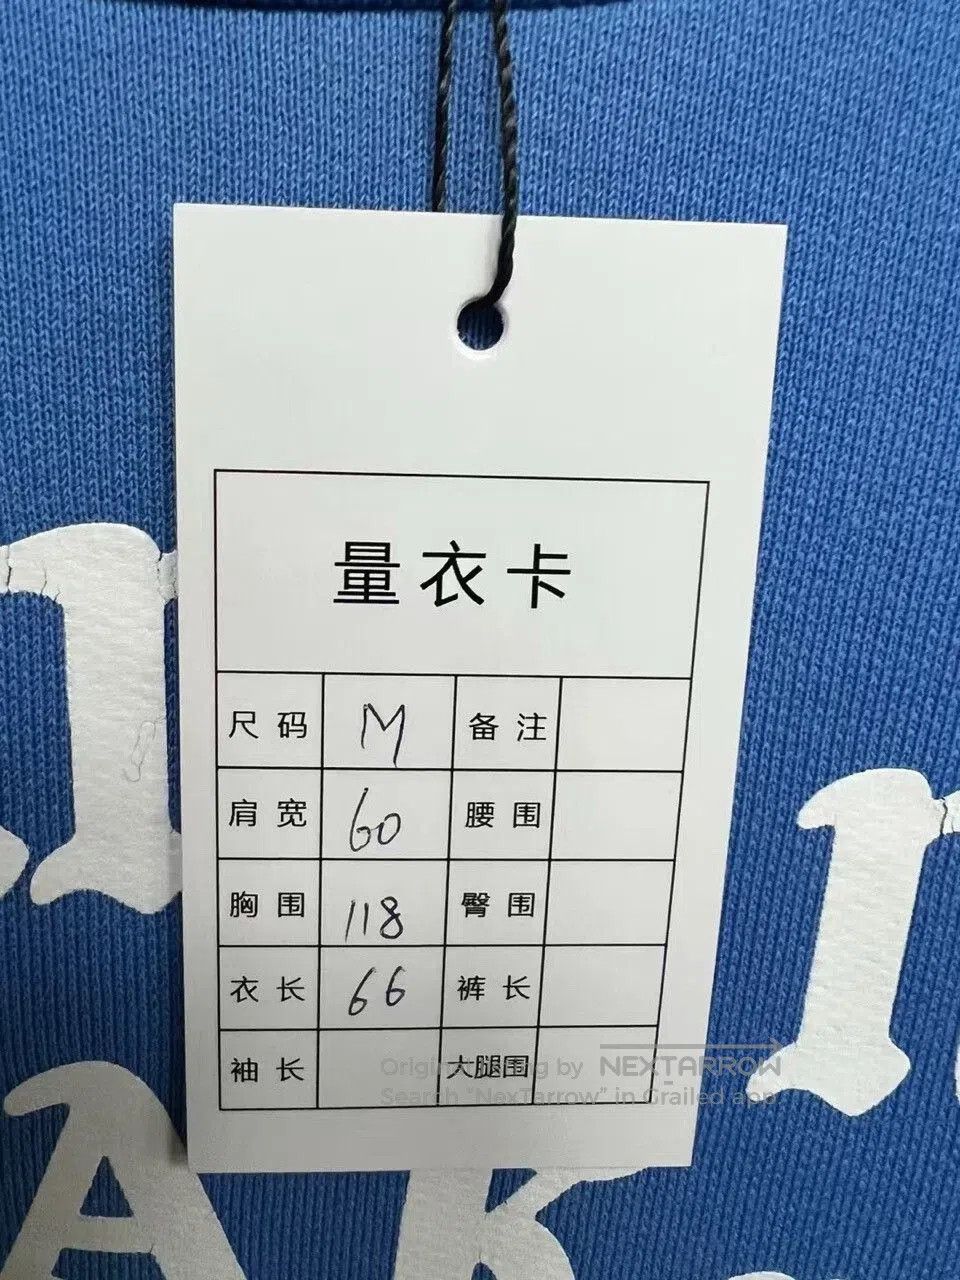 量衣卡
尺码 M 备注
肩宽 60 腰围
胸围 118 臀围
衣长 66 裤长
袖长 大腿围
Original listing by NEXTARROW
Search "NexTarrow" in Grailed app
AK